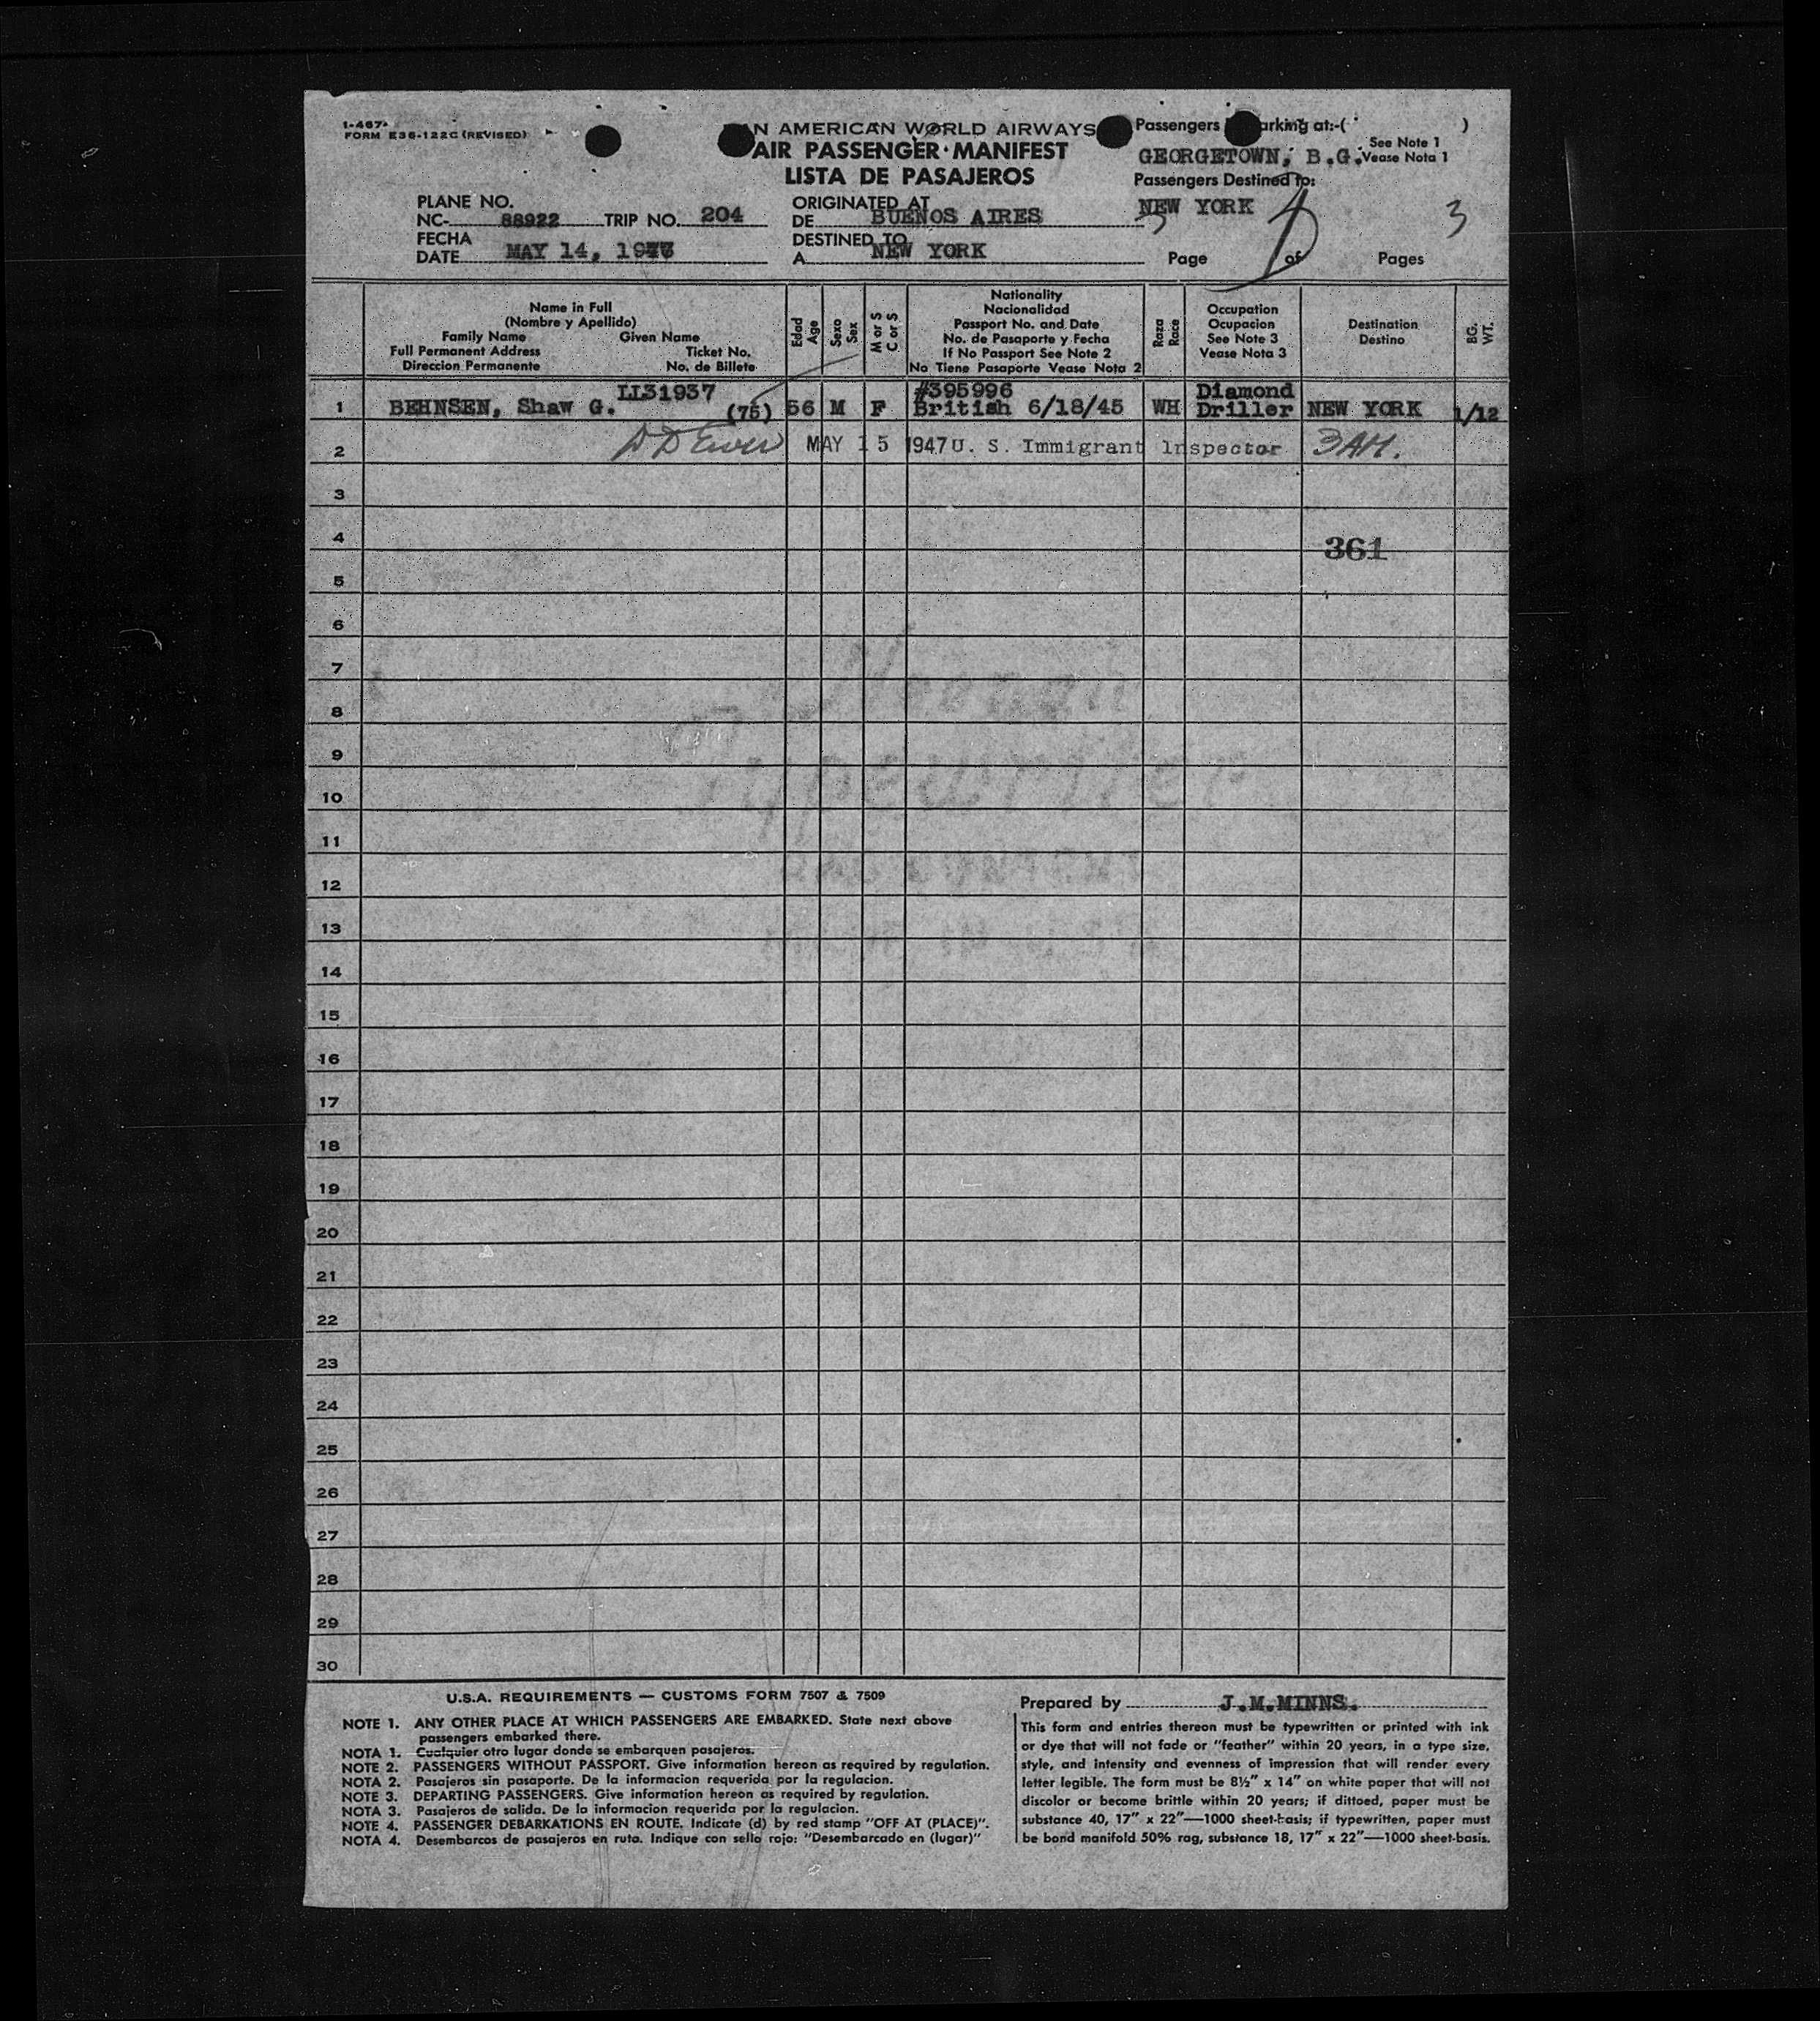 1-467-
FORM E36-122C (REVISED)
AN AMERICAN WORLD AIRWAYS
AIR PASSENGER MANIFEST
LISTA DE PASAJEROS
Passengers arking at:-( )
See Note 1
GEORGETOWN, B.G. Vease Nota 1
Passengers Destined to:
NEW YORK
3
PLANE NO.
NC- 88922 TRIP NO. 204
FECHA
DATE MAY 14, 1947
ORIGINATED AT
DE BUENOS AIRES
DESTINED TO
A NEW YORK
Page of Pages
Name in Full
(Nombre y Apellido)
Family Name Given Name
Full Permanent Address Ticket No.
Direccion Permanente No. de Billete
Edad
Age
Sexo
Sex
M or S
C or S
Nationality
Nacionalidad
Passport No. and Date
No. de Pasaporte y Fecha
If No Passport See Note 2
No Tiene Pasaporte Vease Nota 2
Raza
Race
Occupation
Ocupacion
See Note 3
Vease Nota 3
Destination
Destino
BG.
WT.
LL31937 #395996 Diamond
1 BEHNSEN, Shaw G. (75) 56 M F British 6/18/45 WH Driller NEW YORK 1/12
2 MAY 15 1947 U. S. Immigrant Inspector 3AM.
3
4
361
5
6
7
8
9
10
11
12
13
14
15
16
17
18
19
20
21
22
23
24
25
26
27
28
29
30
U.S.A. REQUIREMENTS — CUSTOMS FORM 7507 & 7509
NOTE 1. ANY OTHER PLACE AT WHICH PASSENGERS ARE EMBARKED. State next above
passengers embarked there.
NOTA 1. Cualquier otro lugar donde se embarquen pasajeros.
NOTE 2. PASSENGERS WITHOUT PASSPORT. Give information hereon as required by regulation.
NOTA 2. Pasajeros sin pasaporte. De la informacion requerida por la regulacion.
NOTE 3. DEPARTING PASSENGERS. Give information hereon as required by regulation.
NOTA 3. Pasajeros de salida. De la informacion requerida por la regulacion.
NOTE 4. PASSENGER DEBARKATIONS EN ROUTE. Indicate (d) by red stamp "OFF AT (PLACE)".
NOTA 4. Desembarcos de pasajeros en ruta. Indique con sello rojo: "Desembarcado en (lugar)"
Prepared by J.M.MINNS.
This form and entries thereon must be typewritten or printed with ink
or dye that will not fade or "feather" within 20 years, in a type size,
style, and intensity and evenness of impression that will render every
letter legible. The form must be 8½" x 14" on white paper that will not
discolor or become brittle within 20 years; if dittoed, paper must be
substance 40, 17" x 22"—1000 sheet-basis; if typewritten, paper must
be bond manifold 50% rag, substance 18, 17" x 22"—1000 sheet-basis.